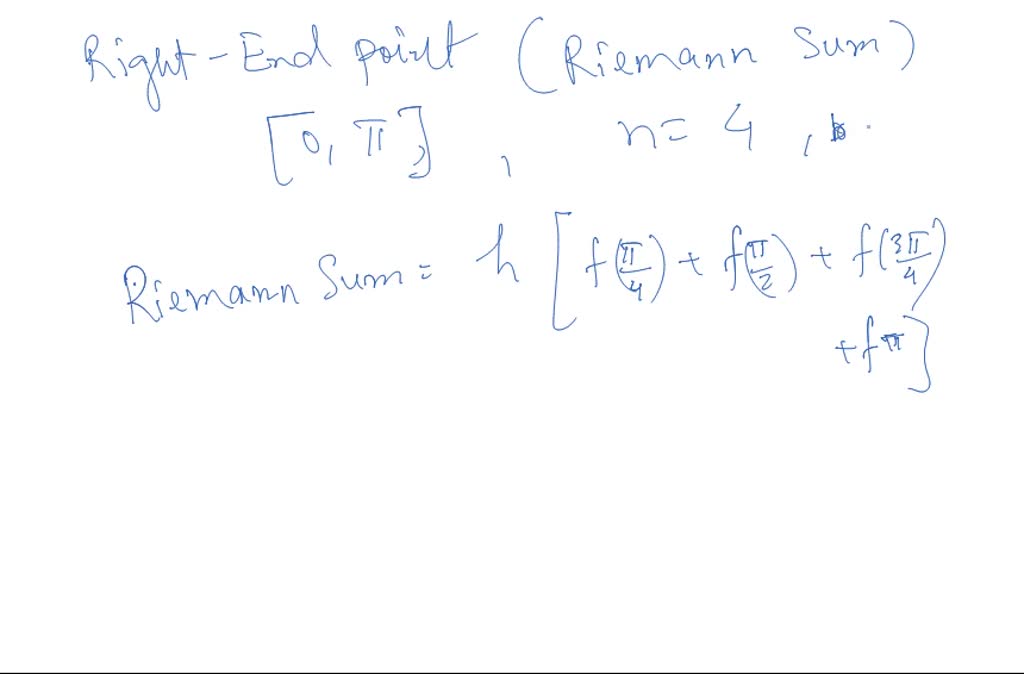 Right-End point (Riemann Sum)
[0, π] , n= 4 ,
Riemann Sum = h [f(π/4) + f(π/2) + f(3π/4)
+fπ]